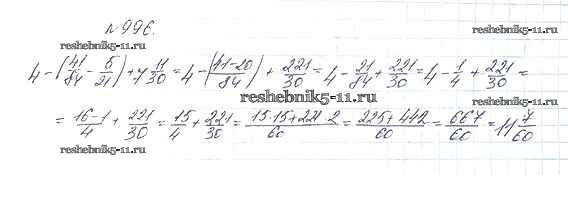 № 996.
reshebnik5-11.ru reshebnik5-11.ru
4 - (41/84 - 5/21) + 7 11/30 = 4 - (41-20/84) + 221/30 = 4 - 21/84 + 221/30 = 4 - 1/4 + 221/30 =
reshebnik5-11.ru
= 16-1/4 + 221/30 = 15/4 + 221/30 = 15·15+221·2/60 = 225+442/60 = 667/60 = 11 7/60
reshebnik5-11.ru reshebnik5-11.ru